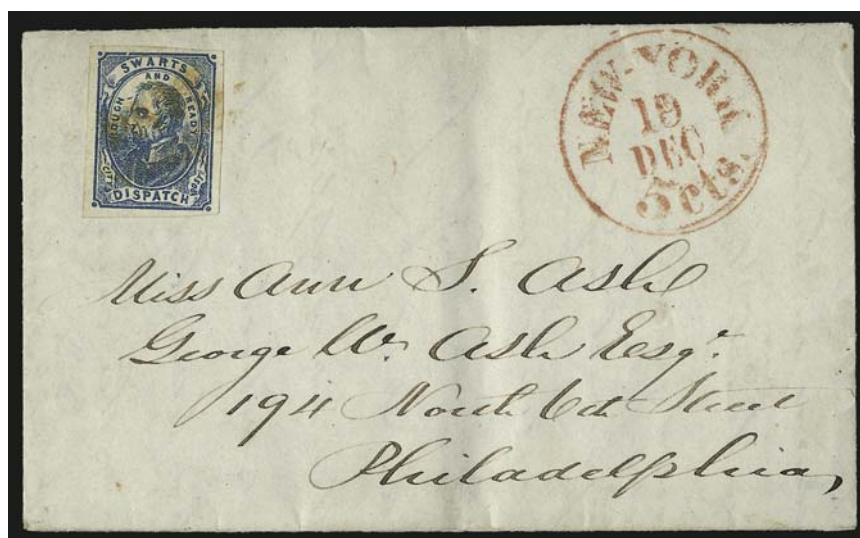 SWARTS
ROUGH AND READY
CITY DISPATCH POST
NEW-YORK
19
DEC
5cts.
Miss Ann S. Ash
George W. Ash Esqr.
194 North 6th Street
Philadelphia,